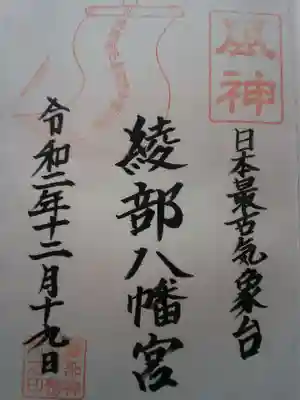 風神
日本最古気象台
綾部八幡宮
令和二年十二月十九日